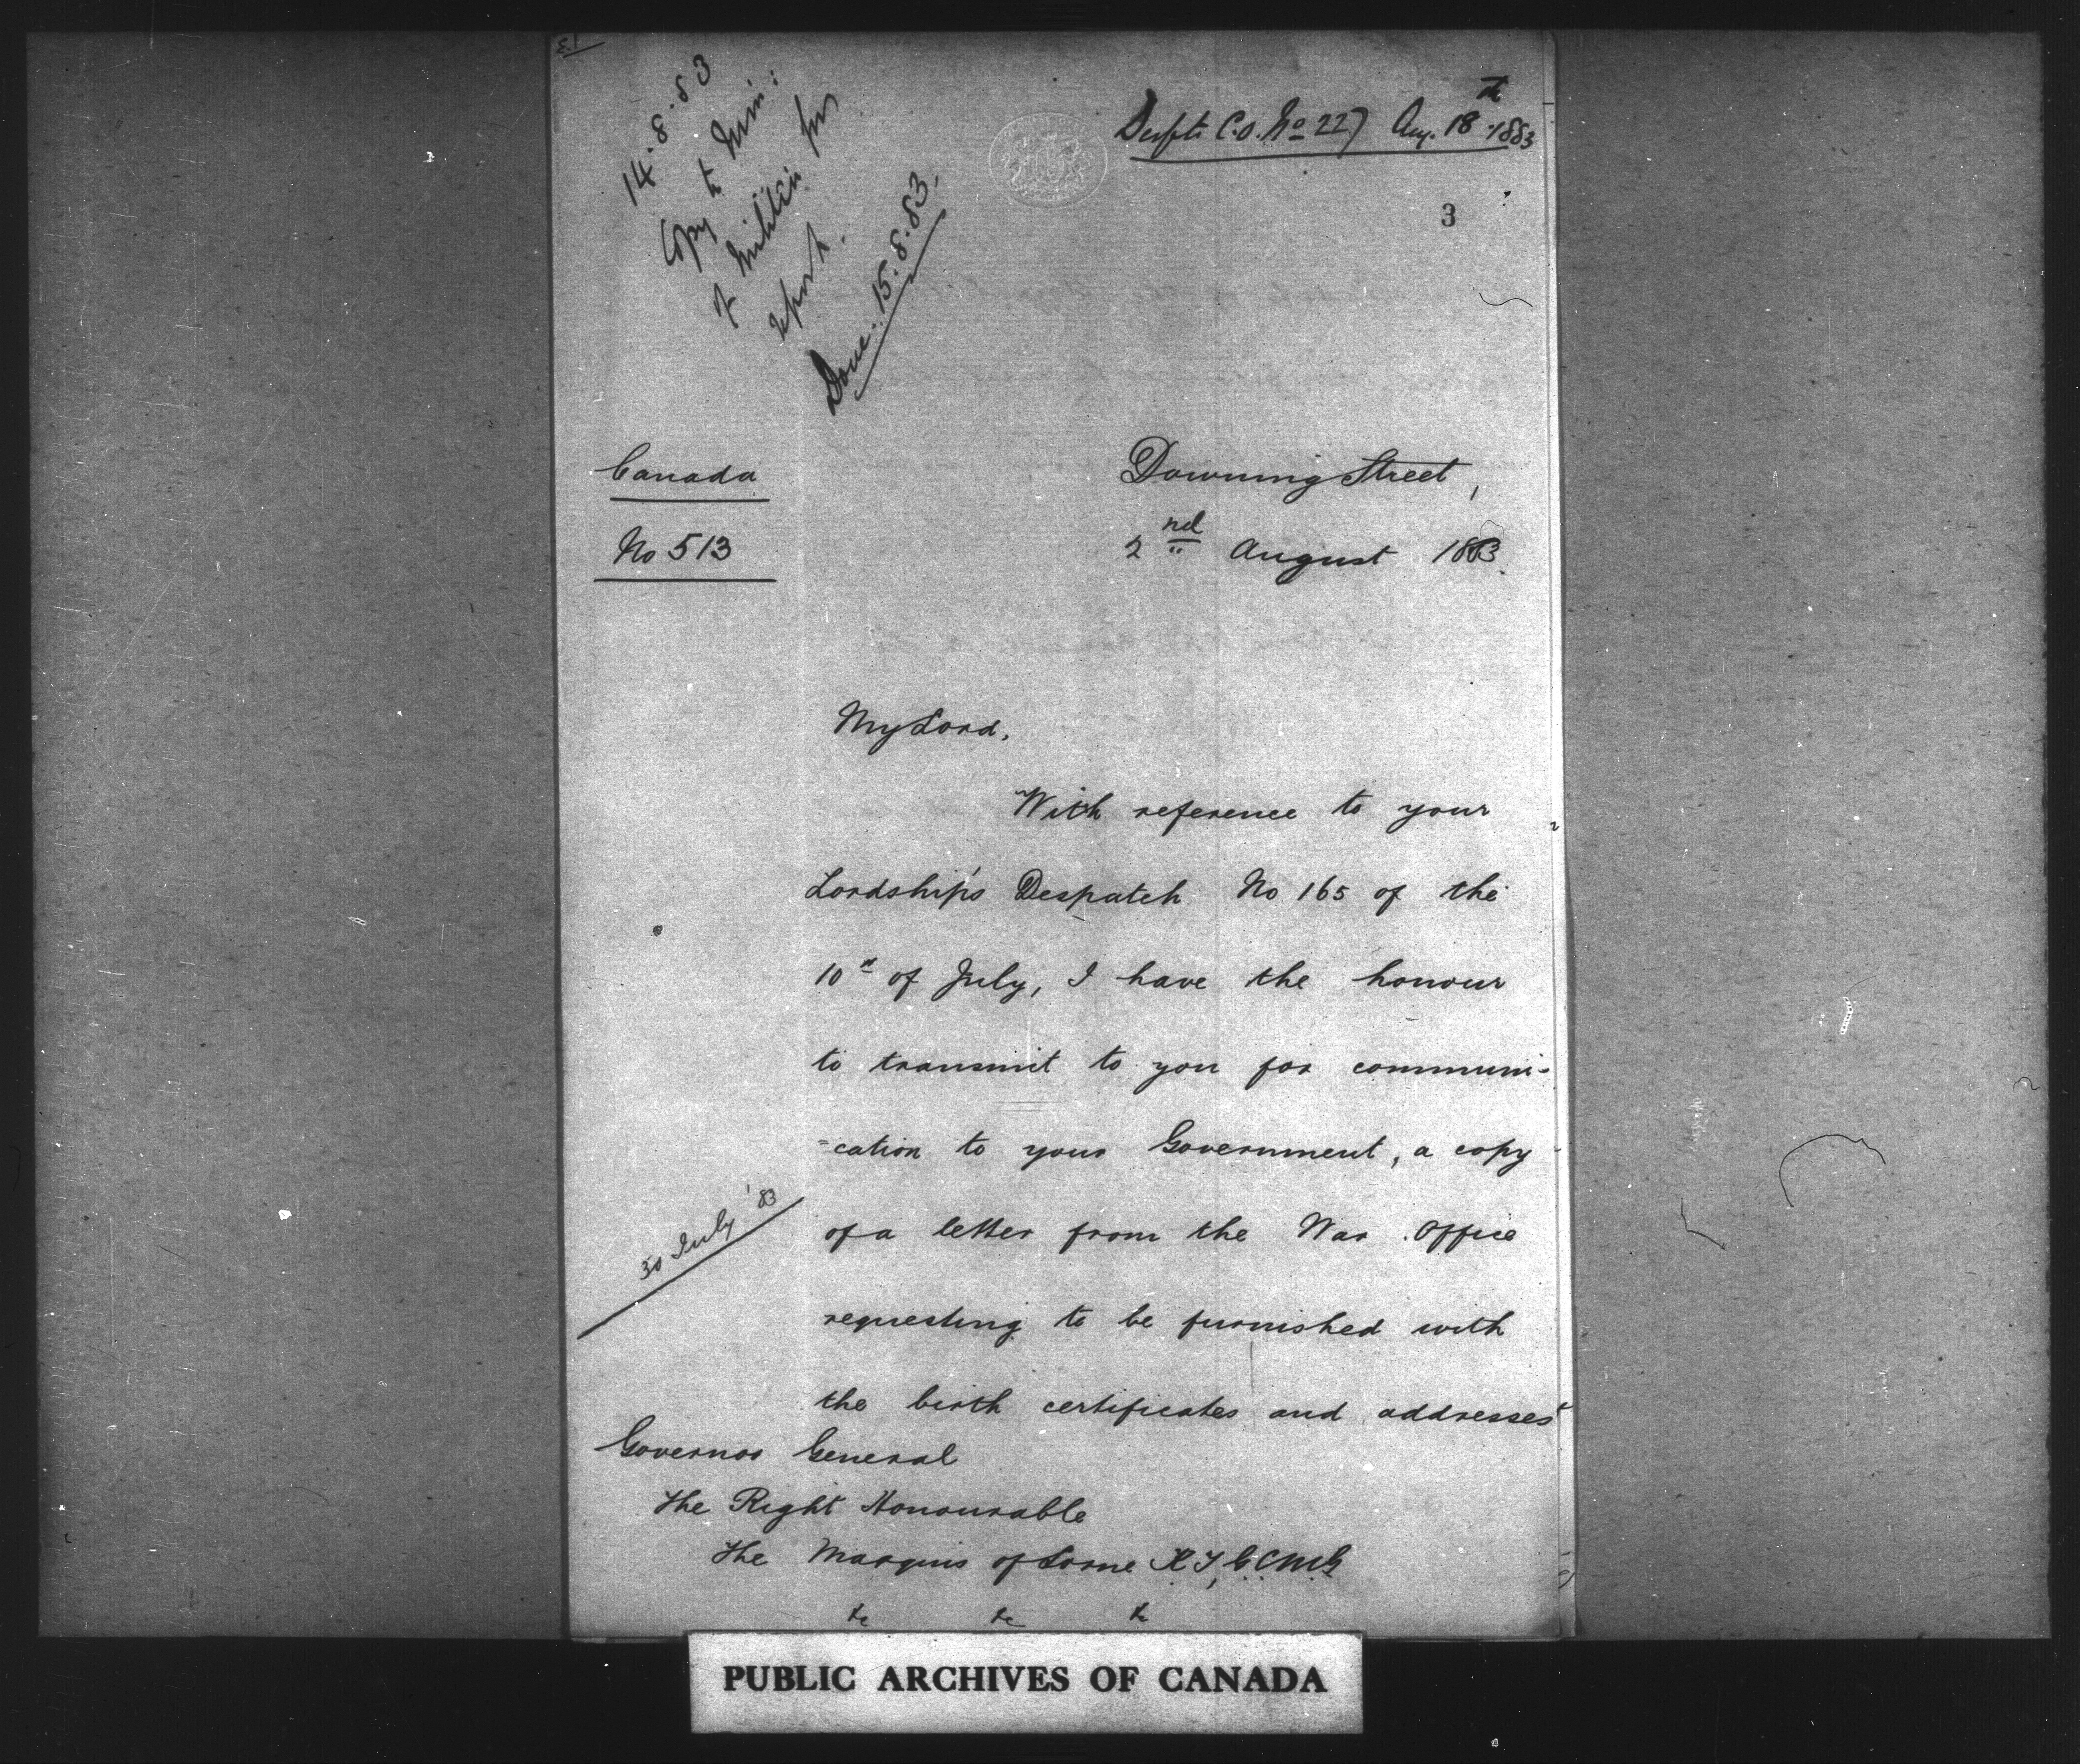 14.8.83
Copy to Min:
of Militia for
report.
Done. 15.8.83.
Despt. C.O. No 227 Aug. 18th 1883
3
Canada
No 513
Downing Street,
2nd August 1883.
My Lord,
With reference to your
Lordship's Despatch No 165 of the
10th of July, I have the honour
to transmit to you for communi-
=cation to your Government, a copy
of a letter from the War Office
30 July '83
requesting to be furnished with
the birth certificates and addresses
Governor General
The Right Honourable
The Marquis of Lorne K T, G C M G
&c &c &c
PUBLIC ARCHIVES OF CANADA